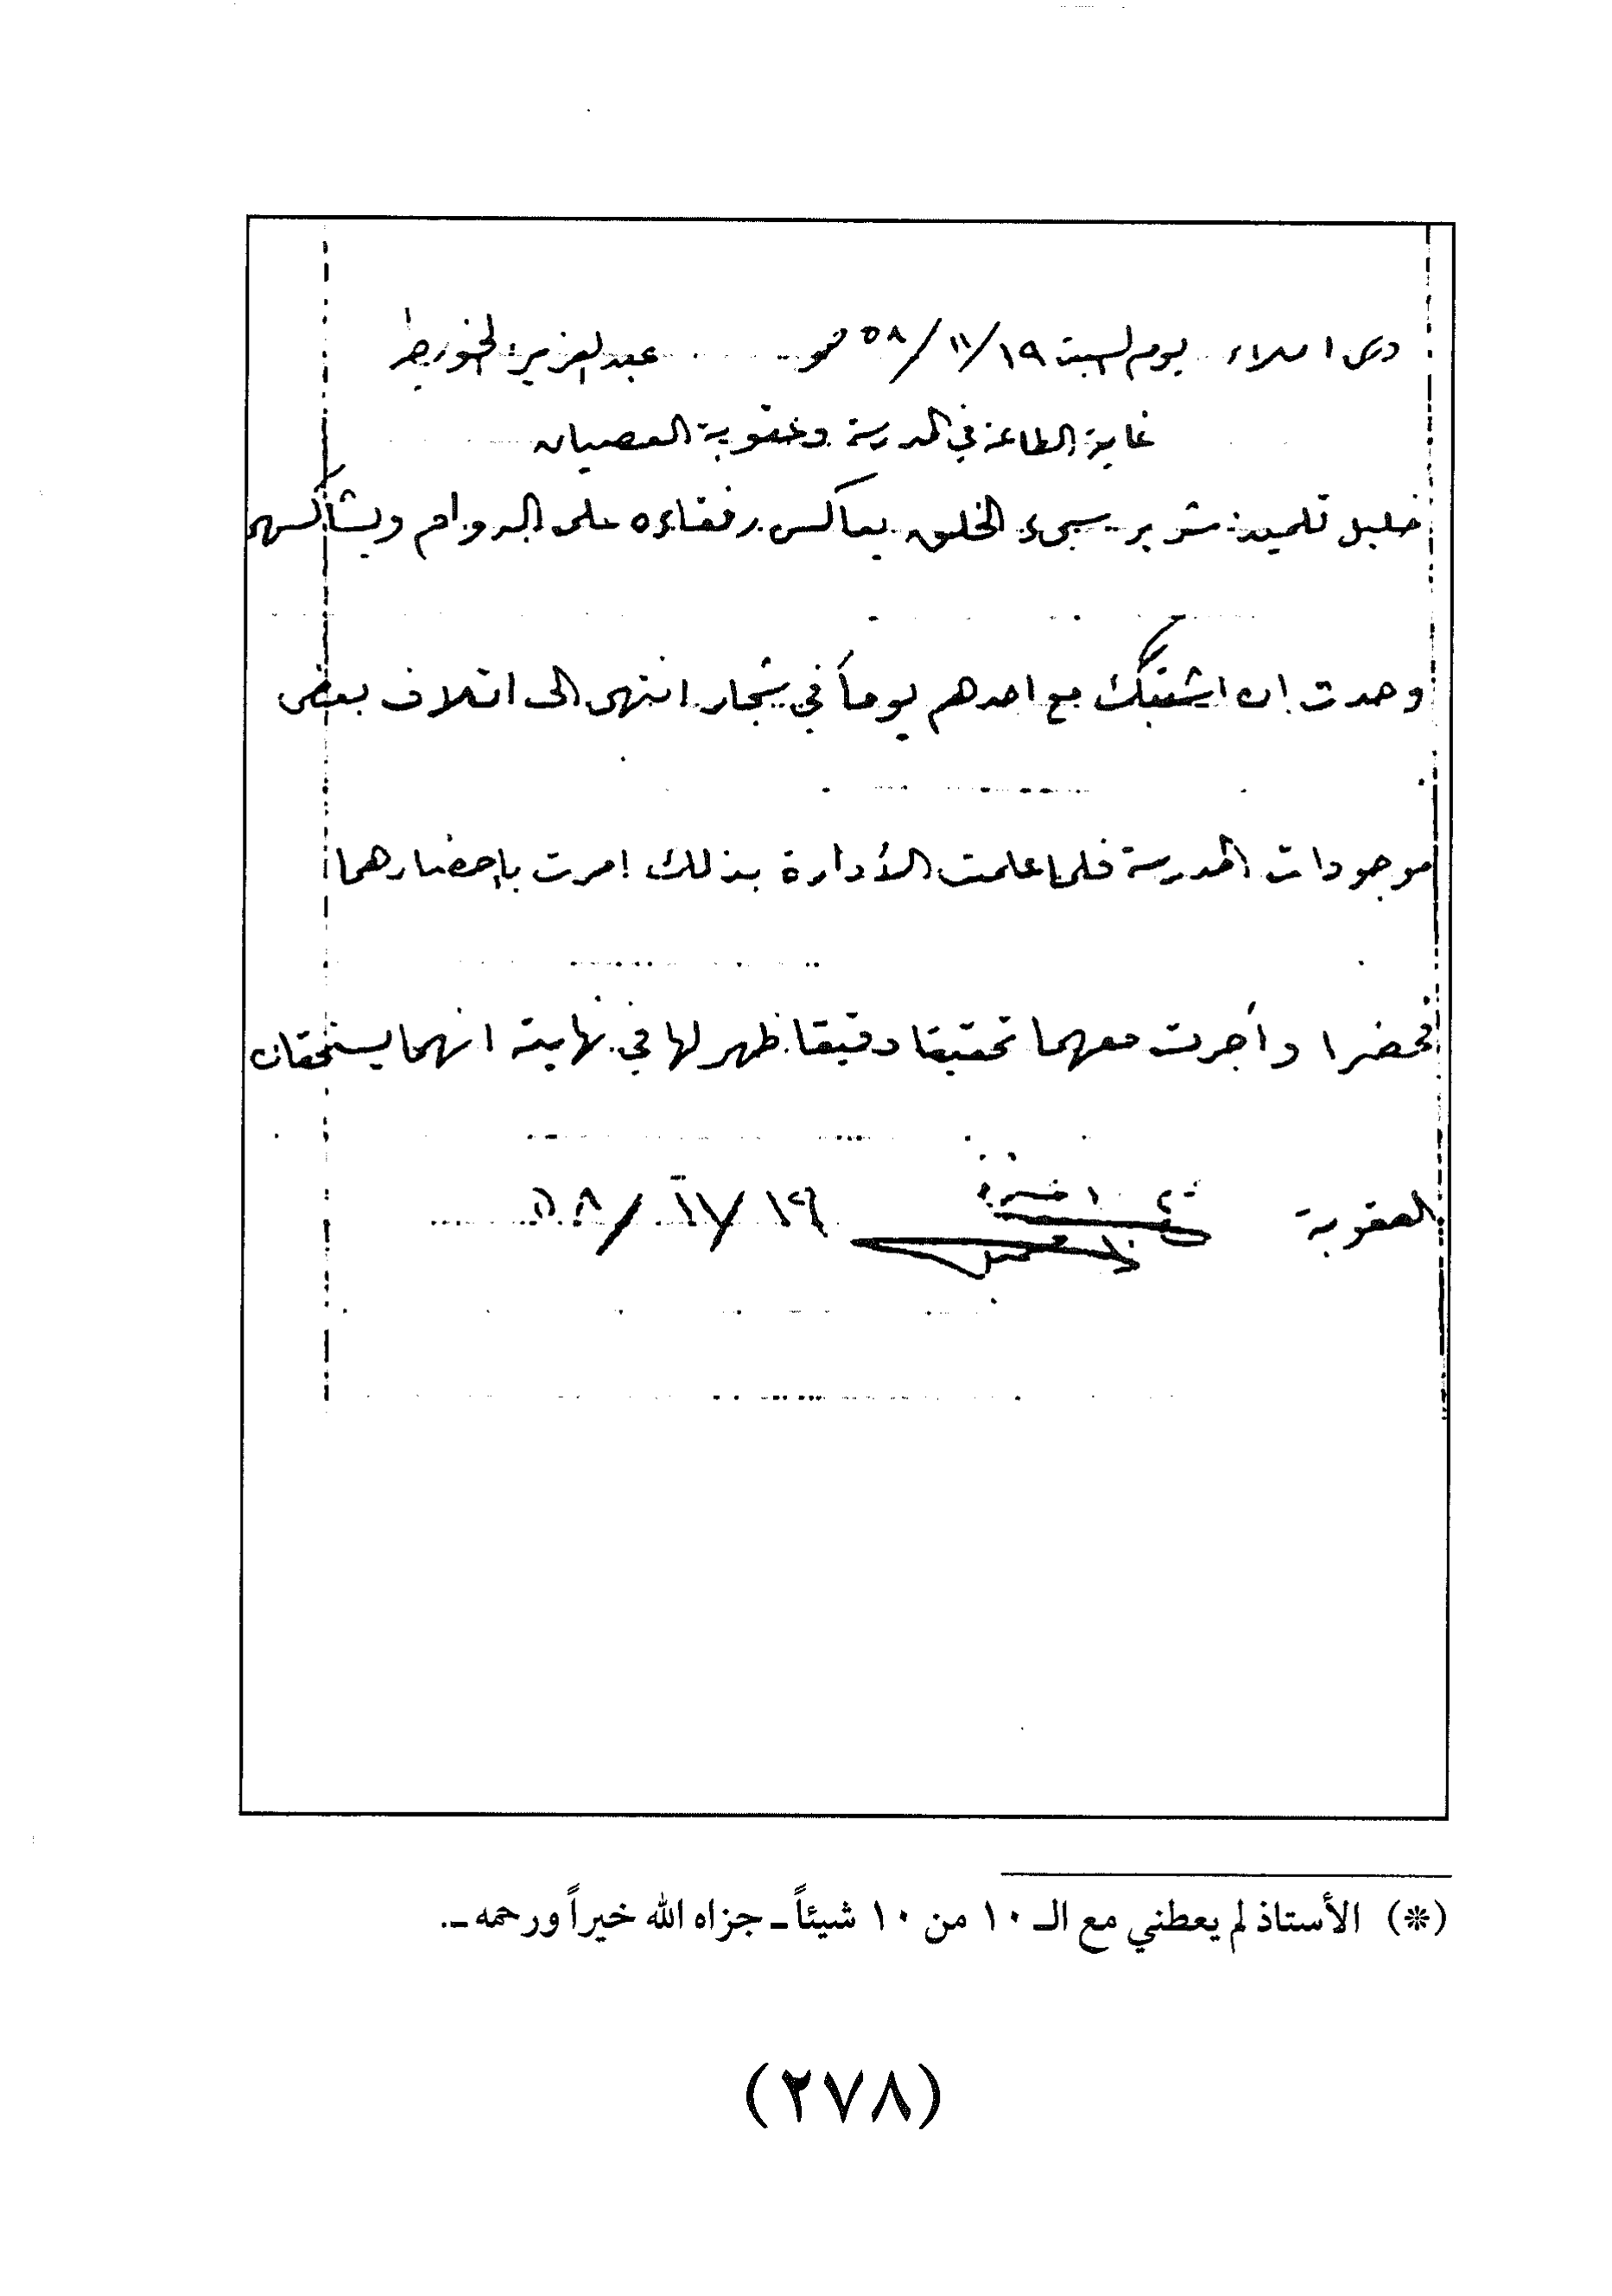 درس املاء يوم السبت ١٩/١١/٥٨ عبد العزيز الخويطر
غاية الطاعة في المدرسة وعقوبة العصيان
خليل تلميذ شرير سيء الخلق يعاكس رفقاءه على الدوام ويشاكسهم
وحدث ان اشتبك مع احدهم يوماً في شجار انتهى الى اتلاف بعض
موجودات المدرسة فلما علمت الأدارة بذلك امرت بإحضارهما
فحضرا وأجرت معهما تحقيقا دقيقا ظهر لها في نهايته انهما يستحقان
العقوبة ١٩/١١/٥٨
(*) الأستاذ لم يعطني مع الـ ١٠ من ١٠ شيئاً ـ جزاه الله خيراً ورحمه ـ.
(٢٧٨)